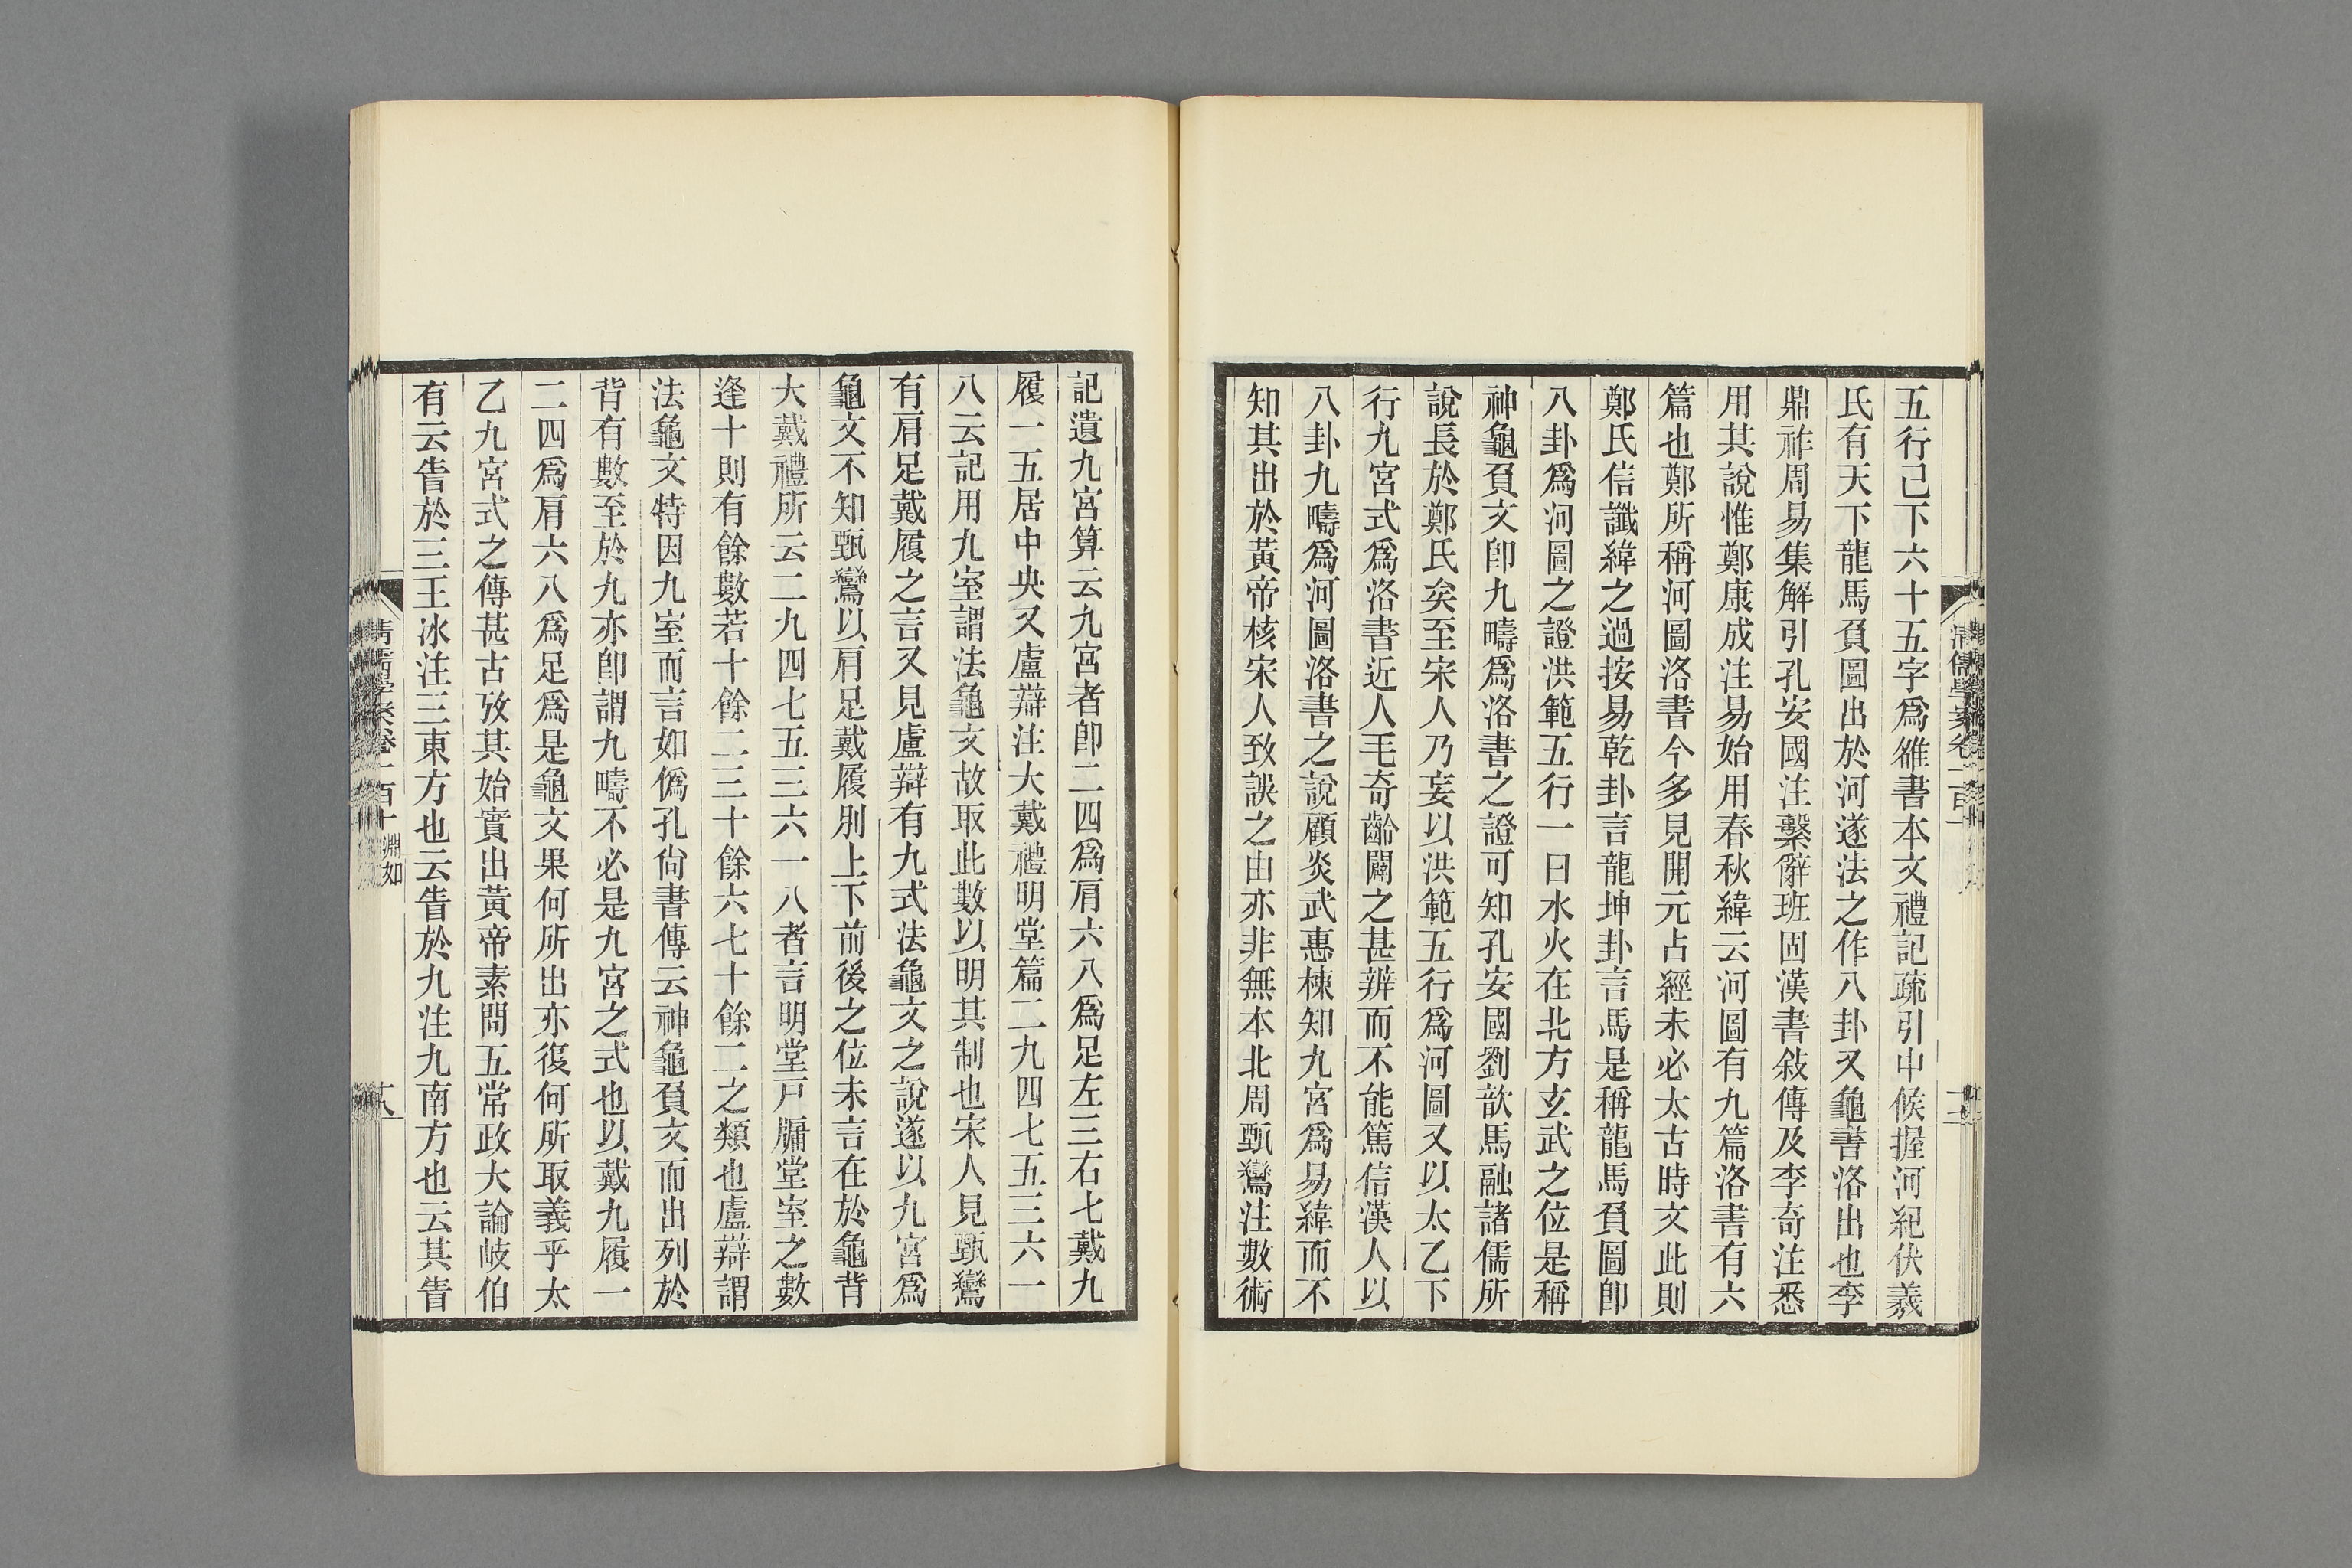 五行己下六十五字爲雒書本文禮記疏引中候握河紀伏羲
氏有天下龍馬負圖出於河遂法之作八卦又龜書洛出也李
鼎祚周易集解引孔安國注繫辭班固漢書敍傳及李奇注悉
用其說惟鄭康成注易始用春秋緯云河圖有九篇洛書有六
篇也鄭所稱河圖洛書今多見開元占經未必太古時文此則
鄭氏信讖緯之過按易乾卦言龍坤卦言馬是稱龍馬負圖卽
八卦爲河圖之證洪範五行一曰水火在北方玄武之位是稱
神龜負文卽九疇爲洛書之證可知孔安國劉歆馬融諸儒所
說長於鄭氏矣至宋人乃妄以洪範五行爲河圖又以太乙下
行九宮式爲洛書近人毛奇齡闢之甚辨而不能篤信漢人以
八卦九疇爲河圖洛書之說顧炎武惠棟知九宮爲易緯而不
知其出於黃帝核宋人致誤之由亦非無本北周甄鸞注數術
記遺九宮算云九宮者卽二四爲肩六八爲足左三右七戴九
履一五居中央又盧辯注大戴禮明堂篇二九四七五三六一
八云記用九室謂法龜文故取此數以明其制也宋人見甄鸞
有肩足戴履之言又見盧辯有九式法龜文之說遂以九宮爲
龜文不知甄鸞以肩足戴履別上下前後之位未言在於龜背
大戴禮所云二九四七五三六一八者言明堂戶牖堂室之數
逢十則有餘數若十餘二三十餘六七十餘二之類也盧辯謂
法龜文特因九室而言如僞孔尙書傳云神龜負文而出列於
背有數至於九亦卽謂九疇不必是九宮之式也以戴九履一
二四爲肩六八爲足爲是龜文果何所出亦復何所取義乎太
乙九宮式之傳甚古攷其始實出黃帝素問五常政大論岐伯
有云眚於三王冰注三東方也云眚於九注九南方也云其眚
清儒學案卷一百十 淵如
十八